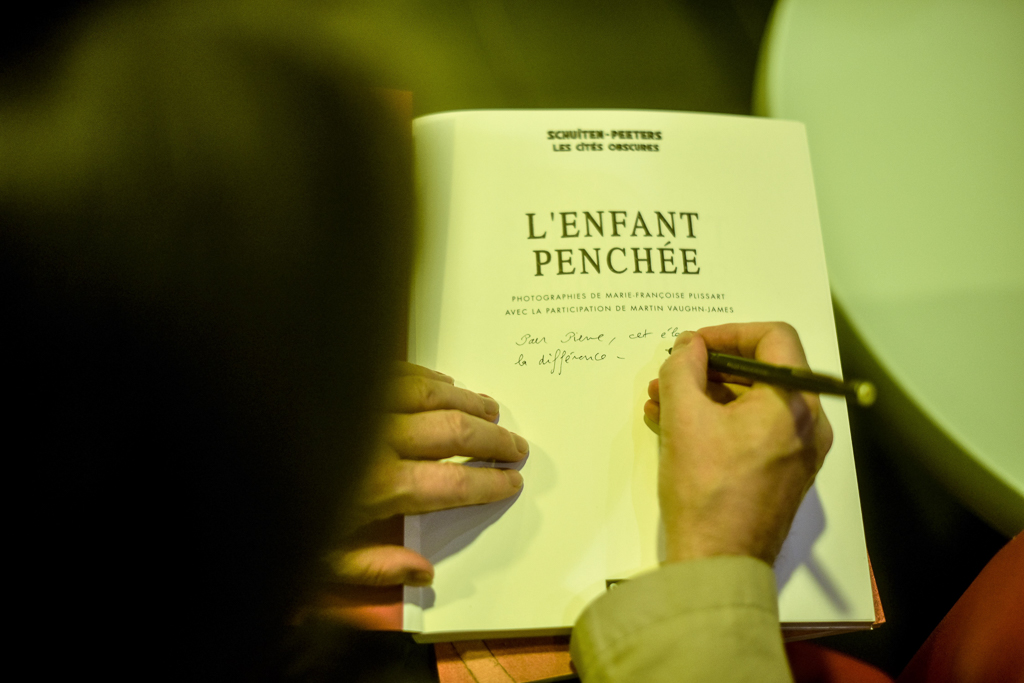 SCHUÏTEN-PEETERS
LES CÎTÉS OBSCURES
L'ENFANT
PENCHÉE
PHOTOGRAPHIES DE MARIE-FRANÇOISE PLISSART
AVEC LA PARTICIPATION DE MARTIN VAUGHN-JAMES
Pour Pierre, cet
la différence -